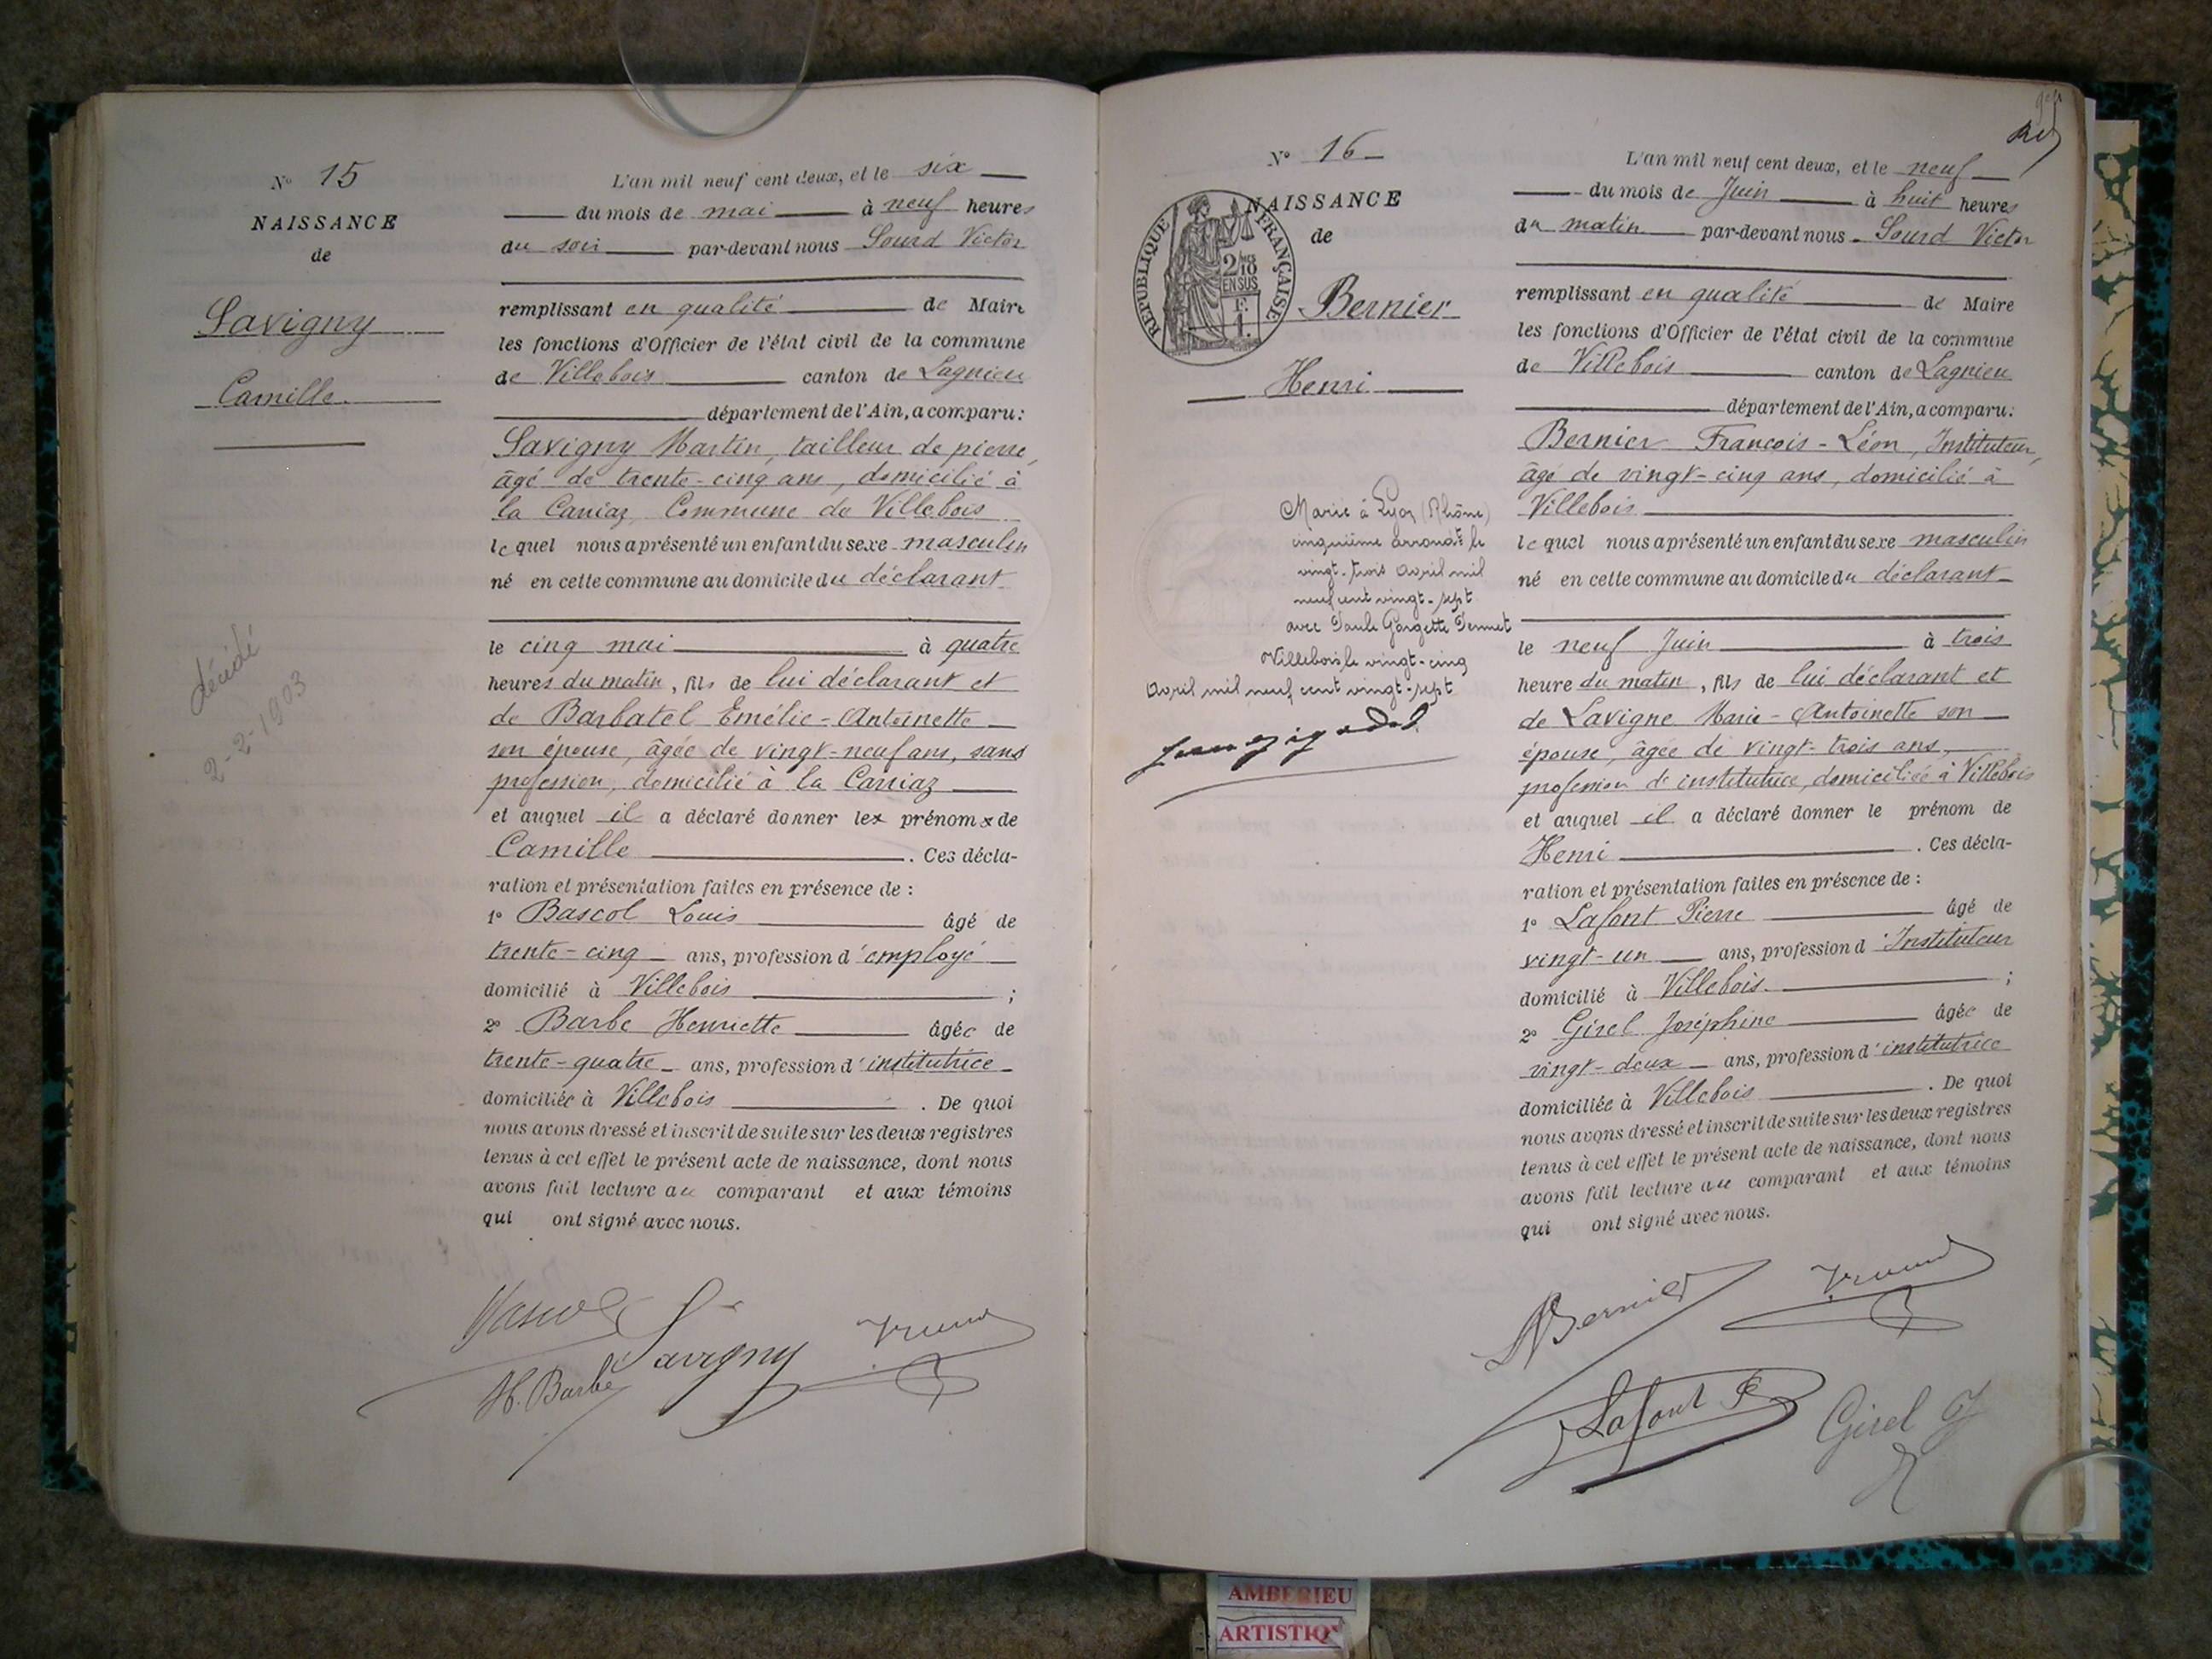 N° 15
NAISSANCE
de
Savigny
Camille.
décédé
2-2-1903
L'an mil neuf cent deux, et le six
du mois de mai à neuf heures
du soir par-devant nous Sourd Victor
remplissant en qualité de Maire
les fonctions d'Officier de l'état civil de la commune
de Villebois canton de Lagnieu
département de l'Ain, a comparu:
Savigny Martin, tailleur de pierre,
âgé de trente-cinq ans, domicilié à
la Carriaz Commune de Villebois
lequel nous a présenté un enfant du sexe masculin
né en cette commune au domicile du déclarant
le cinq mai à quatre
heures du matin, fils de lui déclarant et
de Barbatel Emélie-Antoinette
son épouse, âgée de vingt-neuf ans, sans
profession, domicilié à la Carriaz
et auquel il a déclaré donner les prénoms de
Camille. Ces décla-
ration et présentation faites en présence de :
1° Bascol Louis âgé de
trente-cinq ans, profession d'employé
domicilié à Villebois ;
2° Barbe Henriette âgée de
trente-quatre ans, profession d'institutrice
domiciliée à Villebois. De quoi
nous avons dressé et inscrit de suite sur les deux registres
tenus à cet effet le présent acte de naissance, dont nous
avons fait lecture au comparant et aux témoins
qui ont signé avec nous.
Savigny
H. Barbe
N° 16
NAISSANCE
de
RÉPUBLIQUE FRANÇAISE
2/10
EN SUS
Bernier
Henri
Marié à Lyon (Rhône)
cinquième arrondt le
vingt-trois avril mil
neuf cent vingt-sept
avec Paule Georgette
Villebois le vingt-cinq
avril mil neuf cent vingt-sept
L'an mil neuf cent deux, et le neuf
du mois de Juin à huit heures
du matin par-devant nous Sourd Victor
remplissant en qualité de Maire
les fonctions d'Officier de l'état civil de la commune
de Villebois canton de Lagnieu
département de l'Ain, a comparu:
Bernier François-Léon, Instituteur,
âgé de vingt-cinq ans, domicilié à
Villebois
lequel nous a présenté un enfant du sexe masculin
né en cette commune au domicile du déclarant
le neuf Juin à trois
heure du matin, fils de lui déclarant et
de Lavigne Marie-Antoinette son
épouse, âgée de vingt-trois ans,
profession d'institutrice, domiciliée à Villebois
et auquel il a déclaré donner le prénom de
Henri. Ces décla-
ration et présentation faites en présence de :
1° Lafont Pierre âgé de
vingt-un ans, profession d'Instituteur
domicilié à Villebois. ;
2° Girel Joséphine âgée de
vingt-deux ans, profession d'institutrice
domiciliée à Villebois. De quoi
nous avons dressé et inscrit de suite sur les deux registres
tenus à cet effet le présent acte de naissance, dont nous
avons fait lecture au comparant et aux témoins
qui ont signé avec nous.
Bernier
Lafont P.
Girel J
AMBERIEU
ARTISTIQ